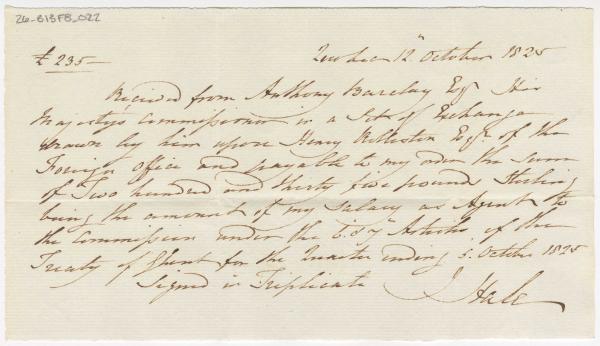 26-B13F8_022
£ 235 — Quebec 12th October 1825
Recieved from Anthony Barclay Esqr His
Majesty's Commissioner in a Set of Exchange
drawn by him upon Henry Rolleston Esqr. of the
Foreign Office and payable to my order the sum
of Two hundred and thirty five pounds Sterling
being the amount of my Salary as Agent to
the Commission under the 6 & 7th Articles of the
Treaty of Ghent for the Quarter ending 5. October 1825
Signed in Triplicate J Hale